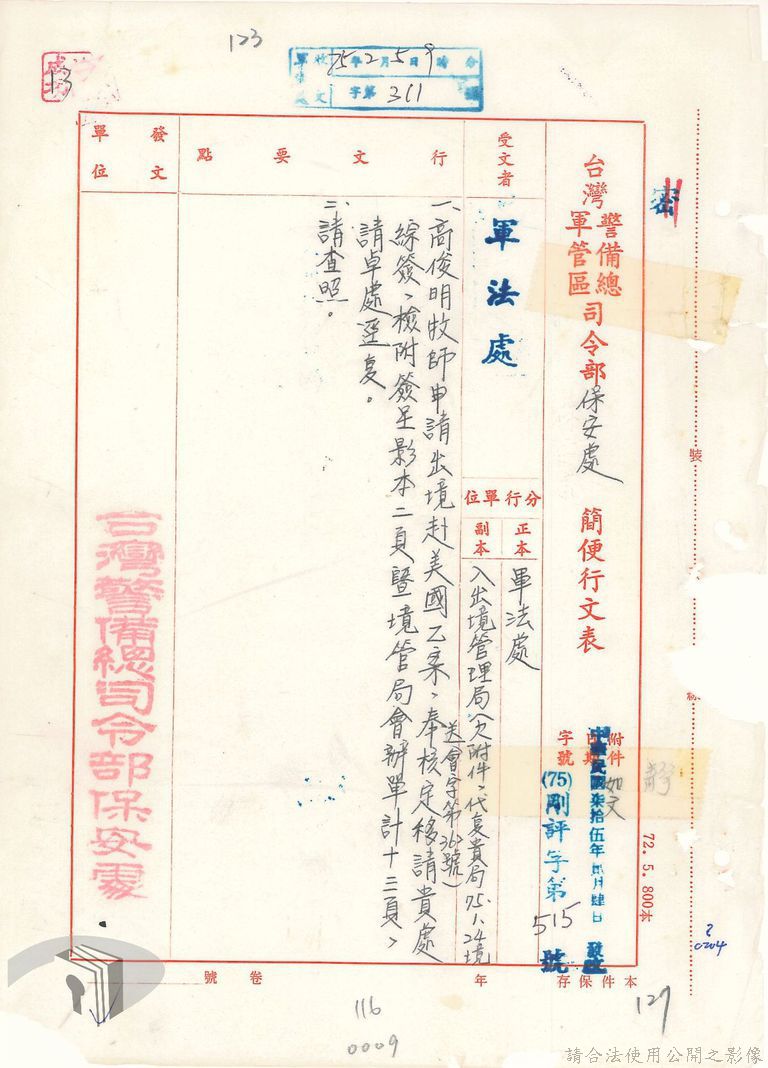 123
13
軍法
收文
75年2月5日9時 分
字第311號
密
台灣警備總司令部保安處 簡便行文表
軍管區
受文者
軍法處
行文要點
發文單位
分行單位
正本
軍法處
副本
入出境管理局(欠附件、代复貴局75.1.24境
送會字第363號)
附件
如文
日期
中華民國柒拾伍年貳月肆日 發
字號
(75)剛評字第515號
一、高俊明牧師申請出境赴美國乙案、奉核定移請貴處
綜簽、檢附簽呈影本二頁暨境管局會辦單計十三頁、
請卓處逕复。
二、請查照。
台灣警備總司令部保安處
72.5.800本
裝
0204
本件保存 年
卷 號
127
116
0009
請合法使用公開之影像